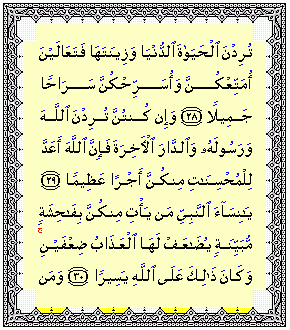 تُرِدْنَ ٱلْحَيَوٰةَ ٱلدُّنْيَا وَزِينَتَهَا فَتَعَالَيْنَ
أُمَتِّعْكُنَّ وَأُسَرِّحْكُنَّ سَرَاحًا
جَمِيلًا ٢٨ وَإِن كُنتُنَّ تُرِدْنَ ٱللَّهَ
وَرَسُولَهُۥ وَٱلدَّارَ ٱلْأَخِرَةَ فَإِنَّ ٱللَّهَ أَعَدَّ
لِلْمُحْسِنَـٰتِ مِنكُنَّ أَجْرًا عَظِيمًا ٢٩
يَـٰنِسَآءَ ٱلنَّبِىِّ مَن يَأْتِ مِنكُنَّ بِفَـٰحِشَةٍ
مُّبَيِّنَةٍ يُضَـٰعَفْ لَهَا ٱلْعَذَابُ ضِعْفَيْنِ ۚ
وَكَانَ ذَٰلِكَ عَلَى ٱللَّهِ يَسِيرًا ٣٠ وَمَن